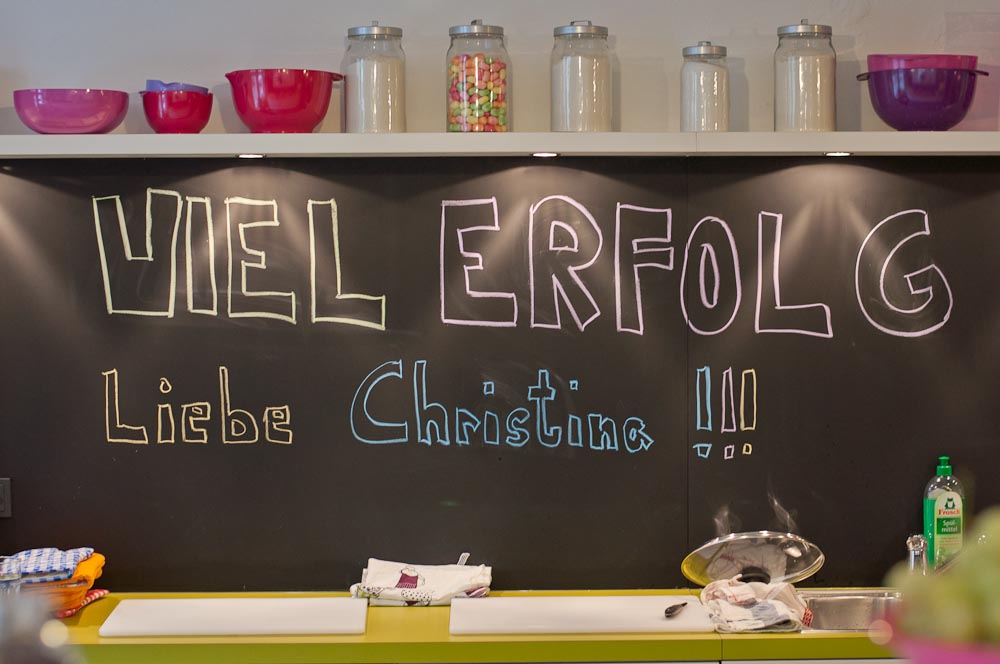 VIEL ERFOLG
Liebe Christina !!!
Frosch
Spül-
mittel